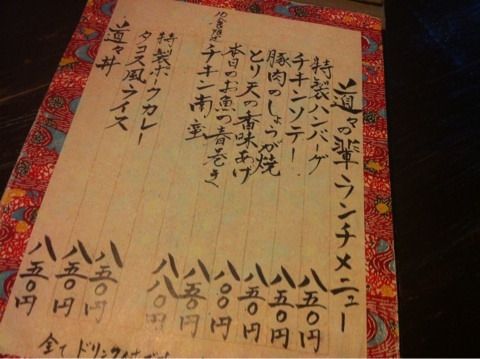 道々の輩ランチメニュー
特製ハンバーグ 八五〇円
チキンソテー 八五〇円
豚肉のしょうが焼 八五〇円
とり天の香味あげ 八〇〇円
本日のお魚の春巻き 八五〇円
チキン南蛮 八八〇円
10食限定
特製ポークカレー 八五〇円
タコス風ライス 八五〇円
道々丼 八五〇円
全てドリンク